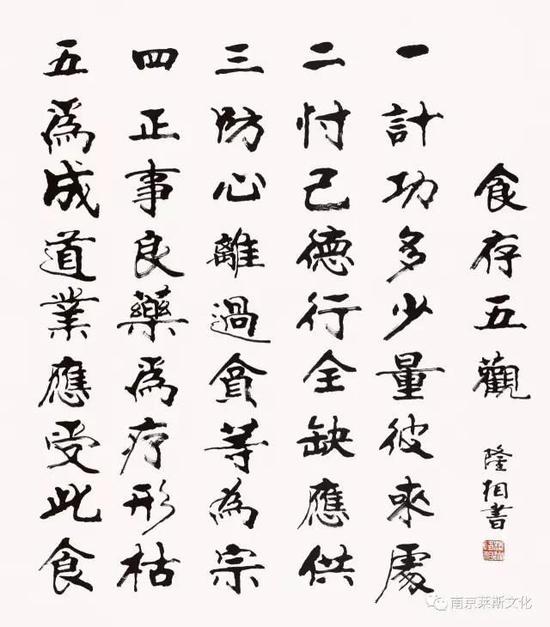 食存五觀
隆相書
一計功多少量彼來處
二忖己德行全缺應供
三防心離過貪等為宗
四正事良藥為疗形枯
五為成道業應受此食
南京莱斯文化